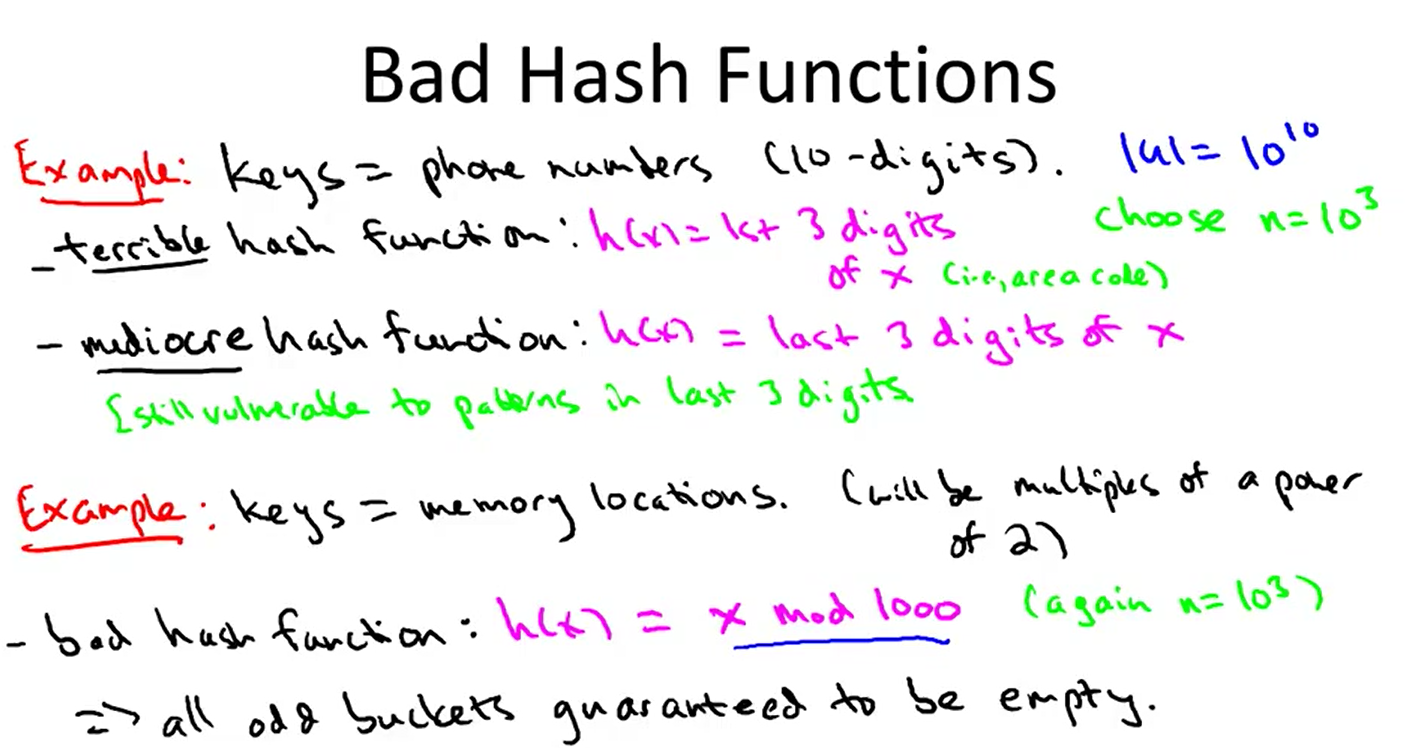 Bad Hash Functions
Example: keys = phone numbers (10-digits). |u| = 10^10
- terrible hash function: h(x) = 1st 3 digits choose n=10^3
of x (i.e., area code)
- mediocre hash function: h(x) = last 3 digits of x
[still vulnerable to patterns in last 3 digits
Example: keys = memory locations. (will be multiples of a power
of 2)
- bad hash function: h(x) = x mod 1000 (again n=10^3)
=> all odd buckets guaranteed to be empty.